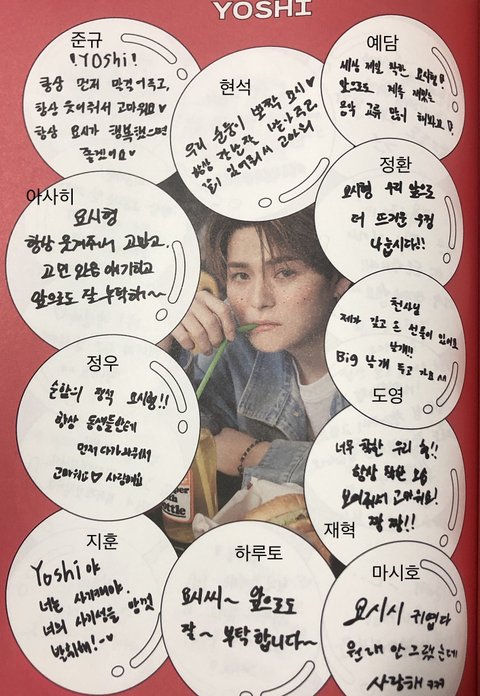 YOSHI
준규
!YOSHI!
항상 먼저 말걸어주고,
항상 웃어줘서 고마워요♡
항상 요시가 행복했으면
좋겠어요♡
현석
우리 순둥이 뽀짝 요시♡
항상 같은 말 받아주고,
옆에 있어줘서 고마워
예담
세상 제일 착한 요시형!
앞으로도 계속 재밌는
음악 교류 많이 해봐요!
정환
요시형 우리 앞으로
더 뜨거운 우정
나눕시다!!
아사히
요시형
항상 웃겨주셔서 고맙고,
고민 있음 얘기하고
앞으로도 잘 부탁해~
천사님
제가 갖고 온 선물이 있어요
날개!!
Big 날개 두고 가요^^
도영
정우
순함의 정석 요시형!!
항상 동생들한테
먼저 다가와줘서
고마워요♡ 사랑해요
너무 착한 우리 형!!
항상 착한 모습
보여줘서 고마워요!
짱 짱!!
재혁
지훈
Yoshi야
너는 사기캐야.
너의 사기성을 맘껏
발휘해!
하루토
요시씨~ 앞으로도
잘~ 부탁합니다~
마시호
요시시 귀엽다
원래 안 그랬는데
사랑해 ㅋㅋㅋ
per
with
ttle